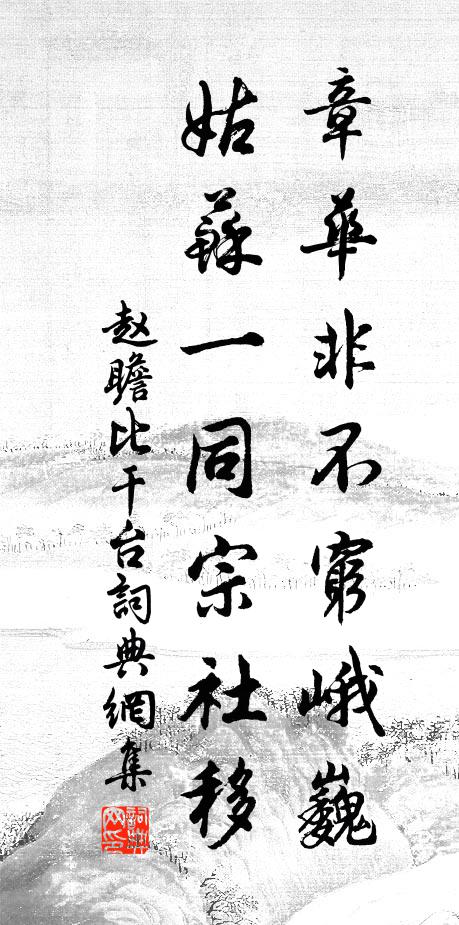 章華非不窮峨巍
姑蘇一同宗社移
赵瞻比干台詞典網集